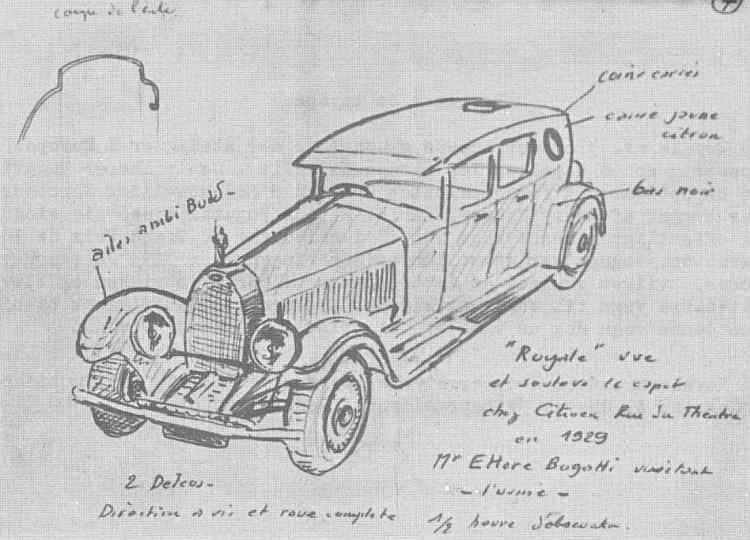 coupe de l'aile
4
cuir jaune
citron
bas noir
ailes ambi Budd -
"Royale" vue
et soulevé le capot
chez Citroen Rue du Theatre
en 1929
Mr Ettore Bugatti visitant
- l'usine -
2 Delcos -
Direction a vis et roue complete
1/2 heure d'observation.